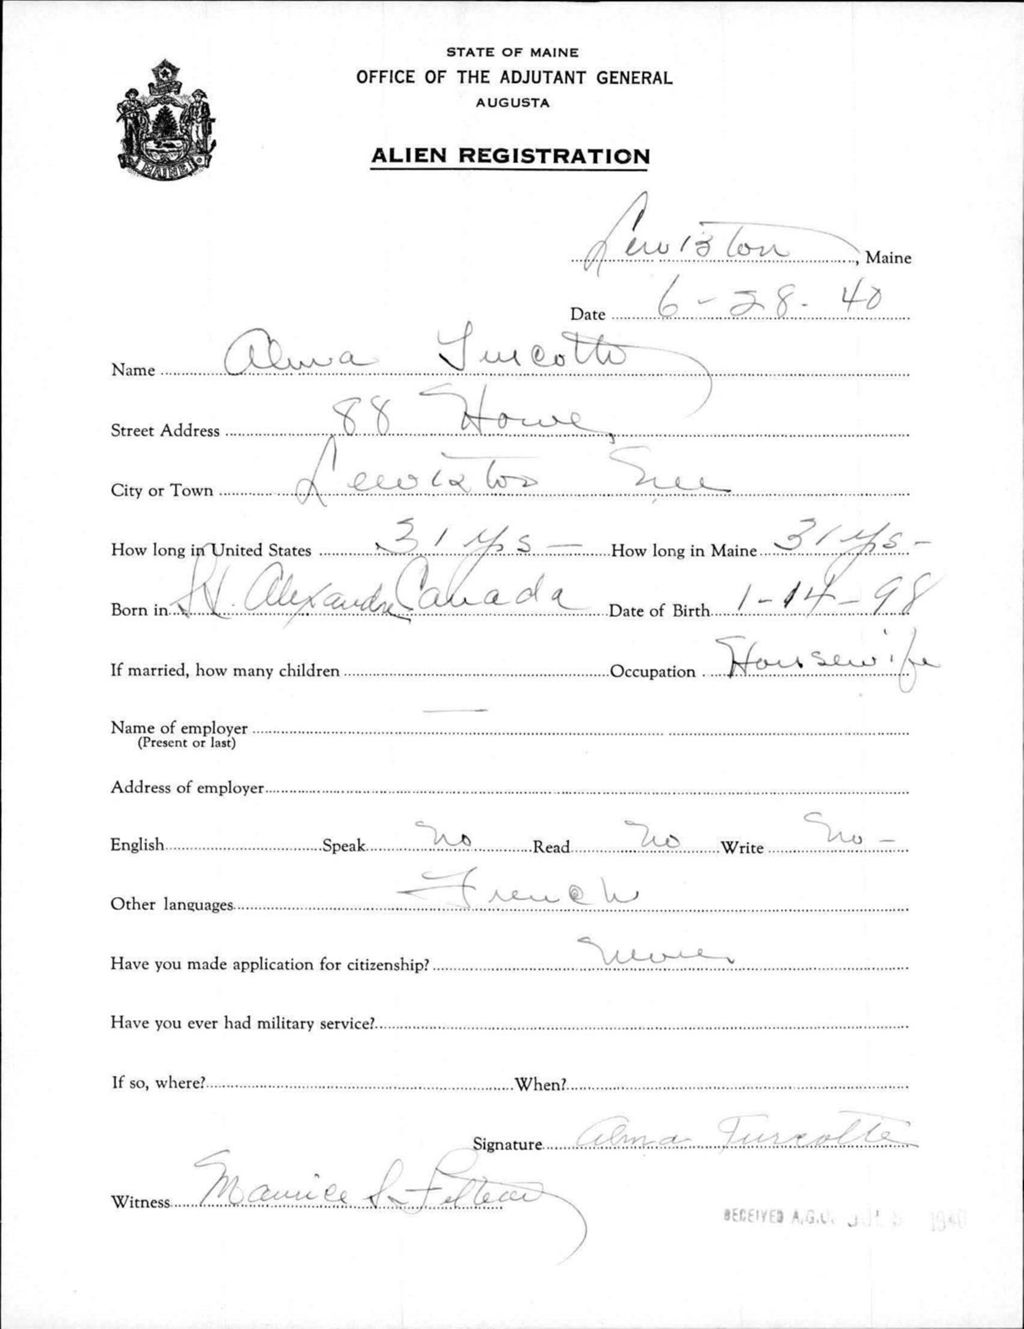 STATE OF MAINE
OFFICE OF THE ADJUTANT GENERAL
AUGUSTA
ALIEN REGISTRATION
MAINE
Lewiston, Maine
Date 6-28-40
Name Alma Turcotte
Street Address 88 Howe,
City or Town Lewiston Me
How long in United States 31 yrs — How long in Maine 31 yrs —
Born in St. Alexandre Canada Date of Birth 1-14-98
If married, how many children Occupation Housewife
Name of employer —
(Present or last)
Address of employer
English Speak No Read No Write No —
Other languages French
Have you made application for citizenship? None
Have you ever had military service?
If so, where? When?
Signature Alma Turcotte
Witness Maurice
RECEIVED A.G.O. 1940